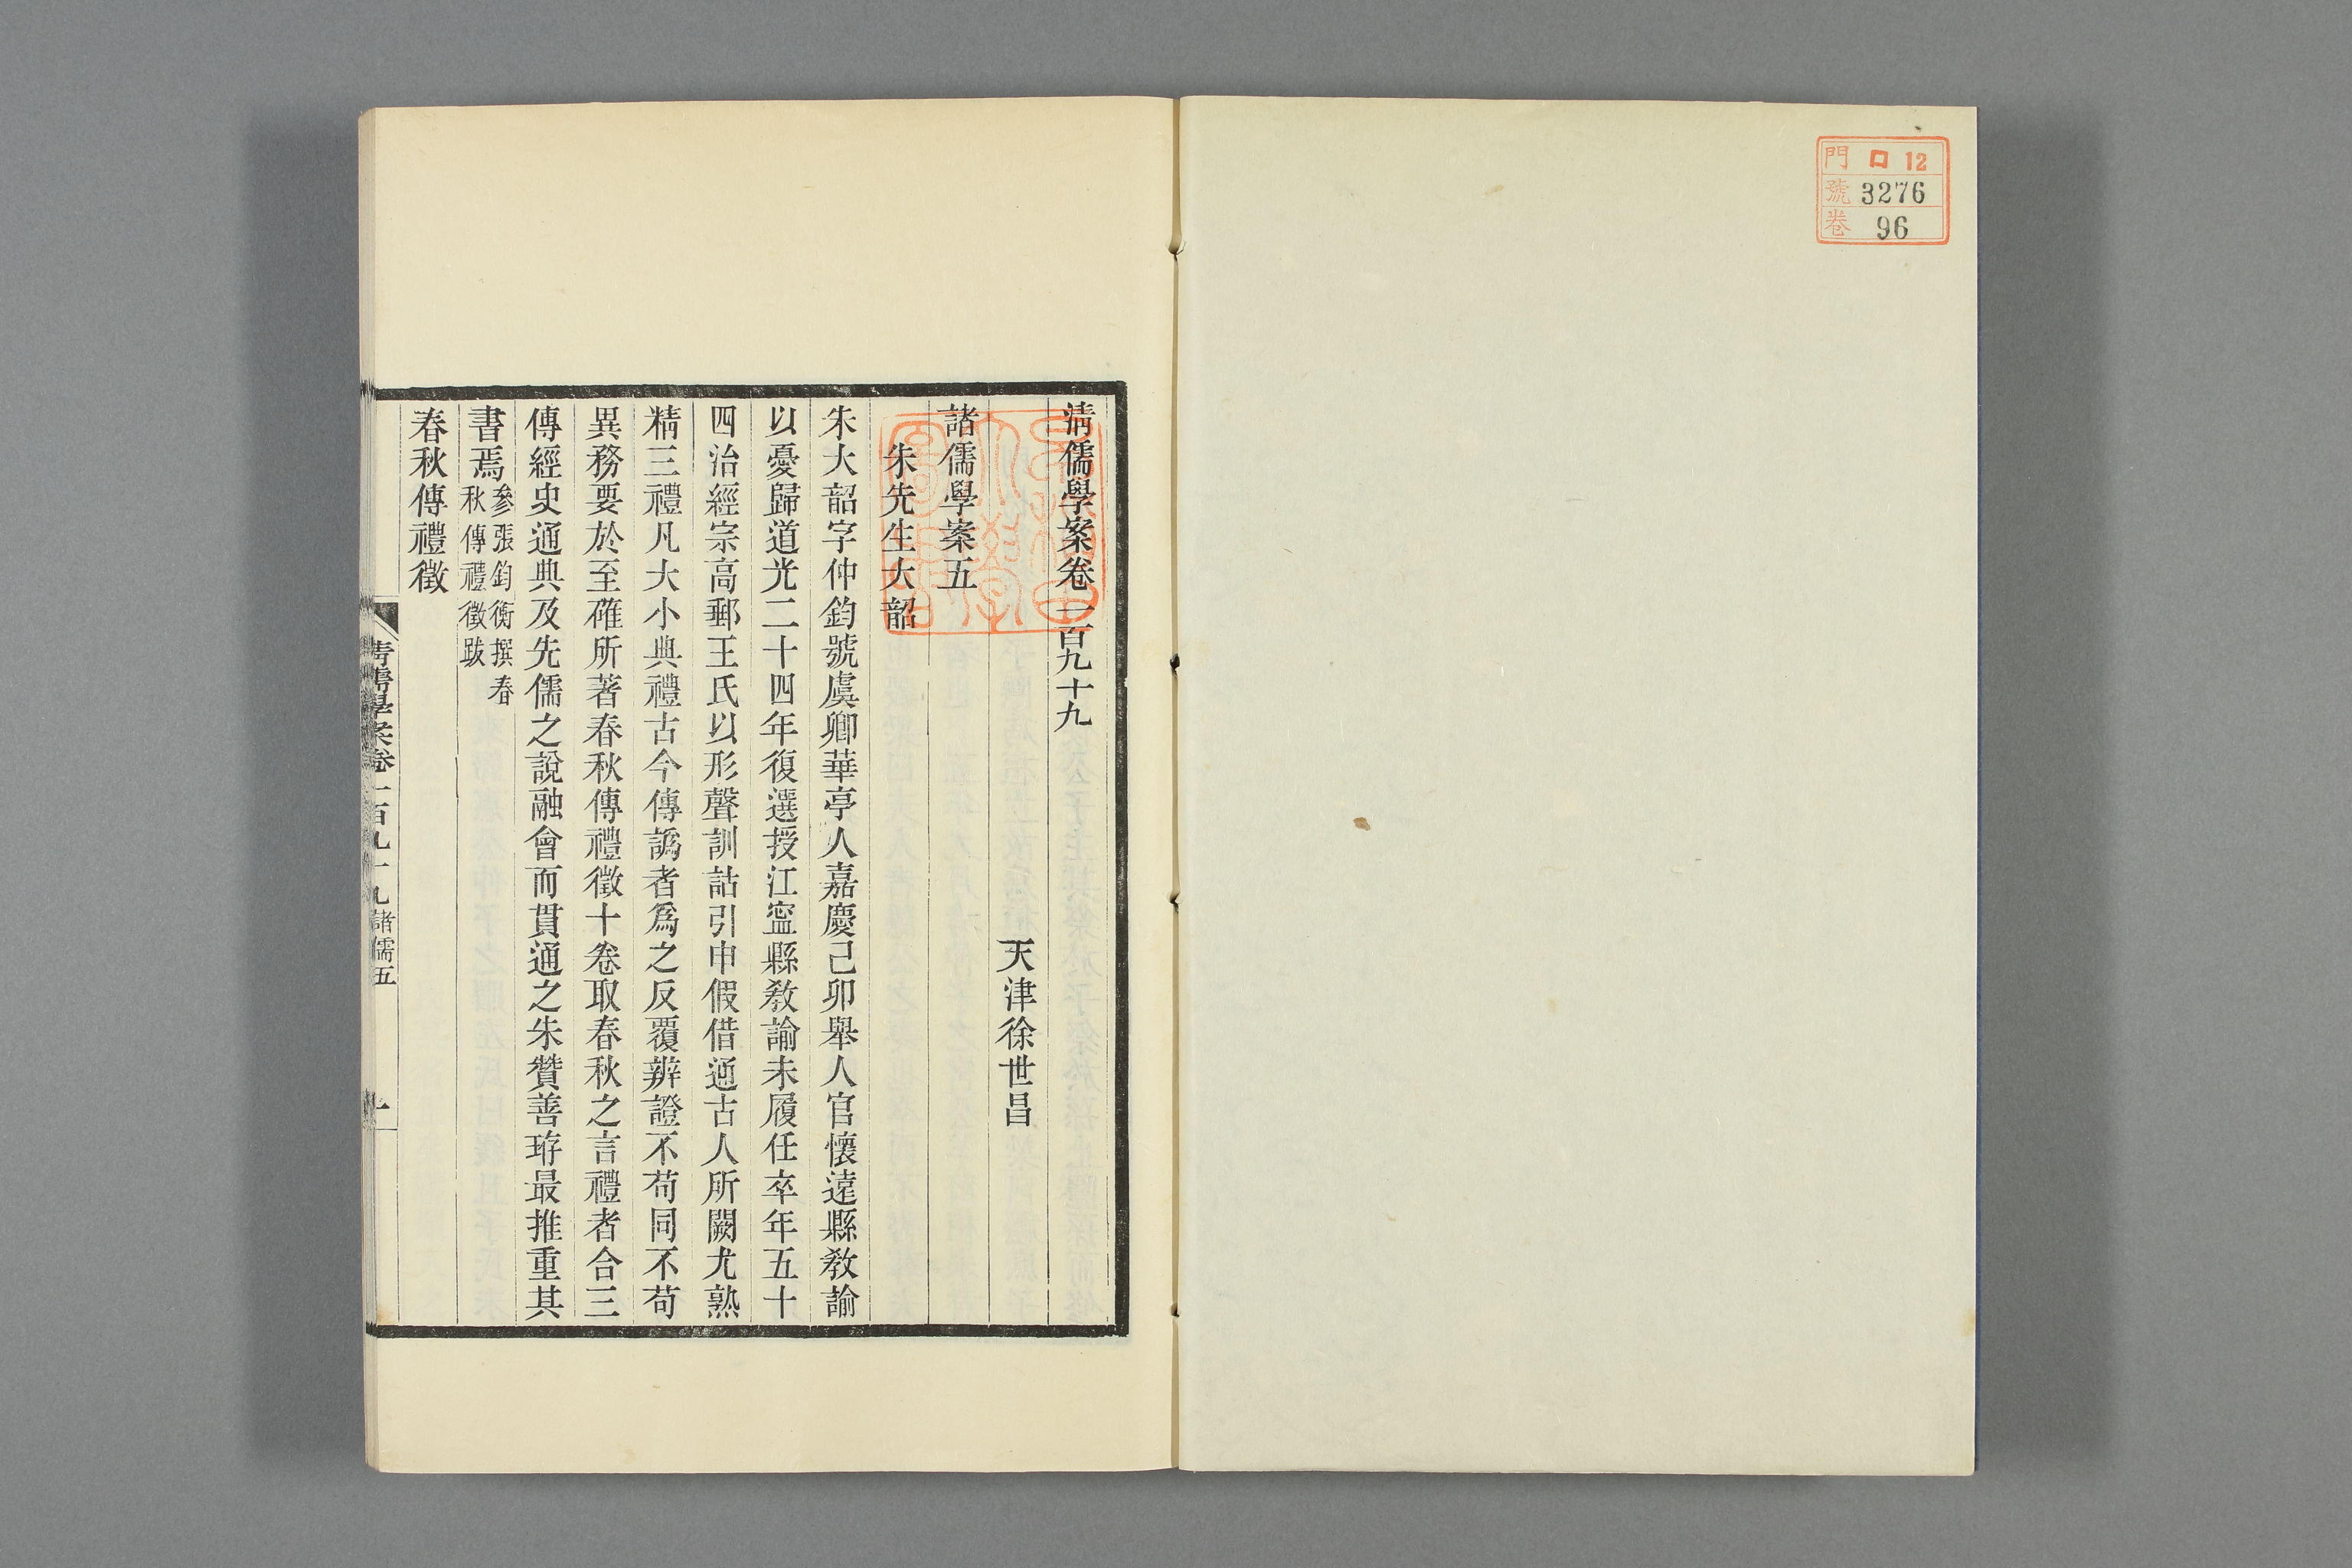 門 ロ 12
號 3276
卷 96
清儒學案卷一百九十九
天津徐世昌
諸儒學案五
朱先生大韶
朱大韶字仲鈞號虞卿華亭人嘉慶己卯舉人官懷遠縣教諭
以憂歸道光二十四年復選授江寍縣教諭未履任卒年五十
四治經宗高郵王氏以形聲訓詁引申假借通古人所闕尤熟
精三禮凡大小典禮古今傳譌者爲之反覆辨證不苟同不苟
異務要於至確所著春秋傳禮徵十卷取春秋之言禮者合三
傳經史通典及先儒之說融會而貫通之朱贊善珔最推重其
書焉參張鈞衡撰春
秋傳禮徵跋
春秋傳禮徵
清儒學案卷一百九十九 諸儒五
一